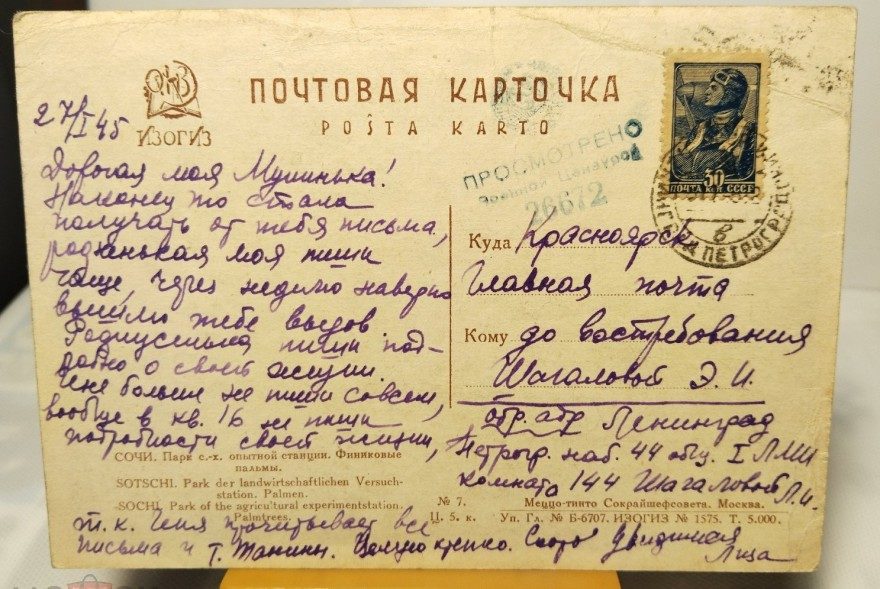 ПОЧТОВАЯ КАРТОЧКА
POŜTA KARTO
ИЗОГИЗ
27/I 45
ПРОСМОТРЕНО
Военной Цензурой
26672
30
ПОЧТА СССР
ПЕТРОГРАД
Дорогая моя Мусинька!
Наконец то стала
получать от тебя письма,
родненькая моя пиши
чаще, через неделю наверно
вышлю тебе вызов.
пиши под-
робно о своей жизни.
Жене больше не пиши совсем,
вообще в кв. 16 не пиши
подробности своей жизни,
т. к. Женя прочитывает все
письма и Т. Танины. Целую крепко. Скоро увидимся
Лиза
Куда Красноярск
Главная почта
Кому до востребования
Шагаловой Э. И.
обр. адр Ленинград
Петрогр. наб. 44 общ. I ЛМИ
комната 144 Шагаловой Л. И.
СОЧИ. Парк с.-х. опытной станции. Финиковые
пальмы.
SOTSCHI. Park der landwirtschaftlichen Versuch-
station. Palmen.
SOCHI. Park of the agricultural experimentstation.
Palmtrees.
№ 7.
Ц. 5. к.
Меццо-тинто Сокрайшефсовета. Москва.
Уп. Гл. № Б-6707. ИЗОГИЗ № 1575. Т. 5.000.